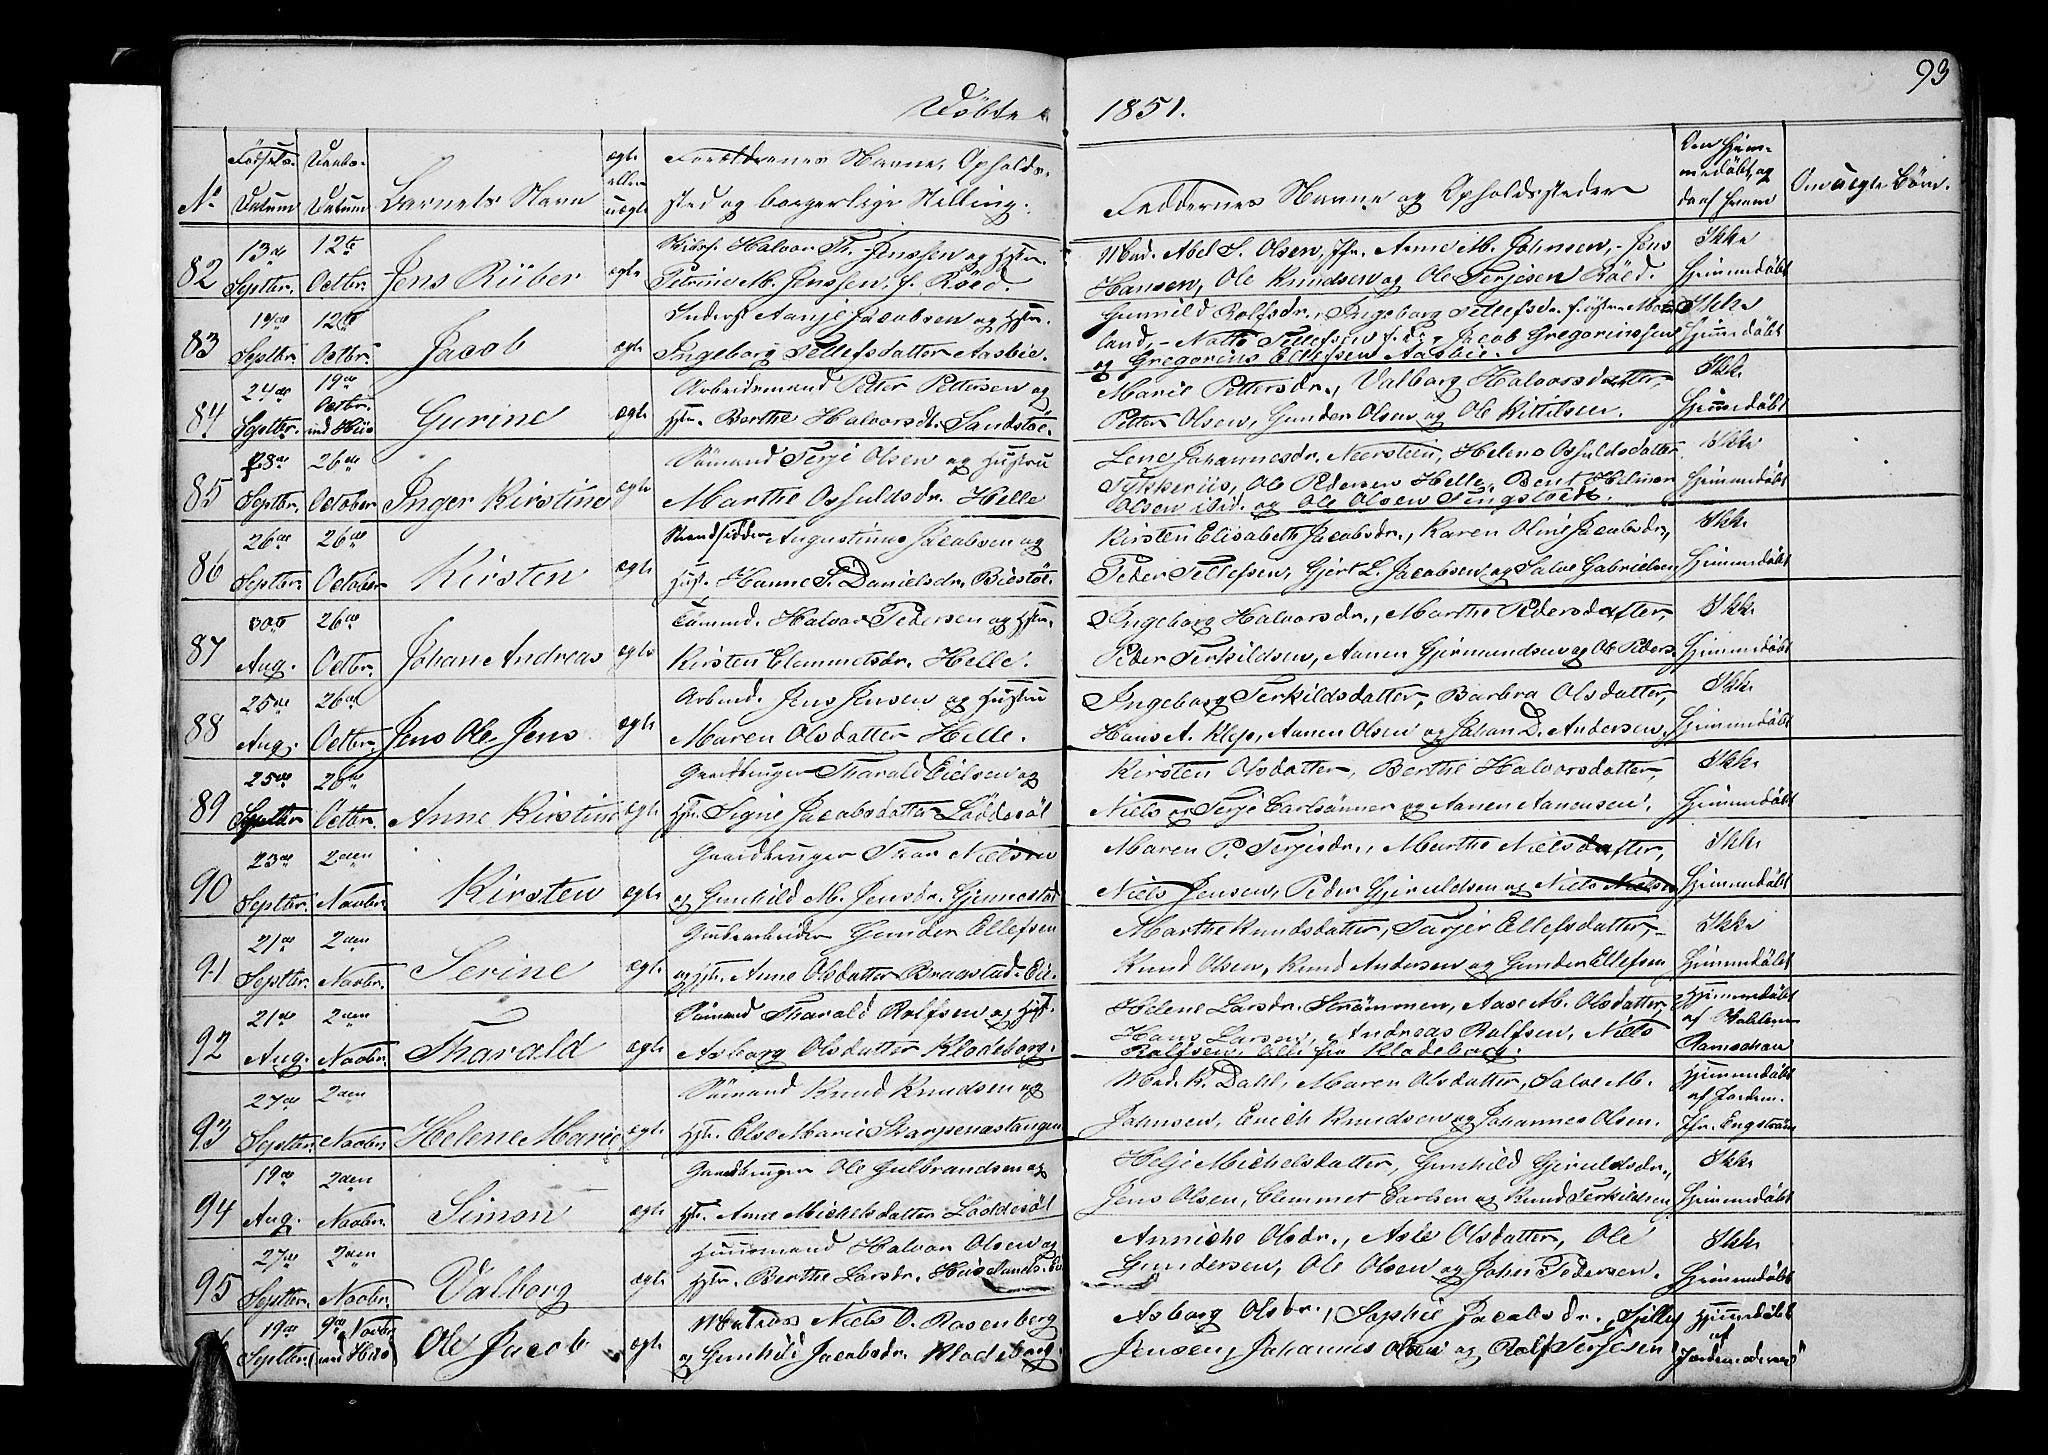 93
Døbte 1851.
No
Fødsels-
Datum
Daabs-
Datum
Barnets Navn
ægte
eller
uægte
Forældrenes Navne, Opholds-
sted og borgerlige Stilling.
Faddernes Navne og Opholdssteder
Om Hjem-
medøbt, og
da af hvem
Om uægte Børn.
82
13de
Septbr.
12te
Octbr.
Jens Riiber
ægte
Halvor Th. Jenssen og Hstr.
Petrine M. Jenssen, f. Röed.
Mad. Abel S. Olsen, Jfr. Anne M. Johnsen, - Jens
Hansen, Ole Knudsen og Ole Terjesen Röed.
Ikke
Hjemmedøbt
83
14de
Septbr.
12te
Octbr.
Jacob
ægte
Inderst Aanje Jacobsen og Hstr.
Ingeborg Tellefsdatter Aasbie.
Gunnild Rolfsdr., Ingeborg Tellefsdr.
land, - Tellefsen Jacob Gregoriussen
og Gregorius Ellefsen Aasbie.
Ikke
Hjemmedøbt
84
24de
Septbr.
19de
Octbr.
ind Hiis
Gurine
ægte
Arbeidsmand Petter Pettersen og
Hstr. Berthe Halvorsdr. Sandstøe.
Marie Pettersdr., Valborg Halvorsdatter,
Petter Olsen, Gunder Olsen og Ole Kittilsen.
Ikke
Hjemmedøbt
85
28de
Septbr.
26de
October
Inger Kirstine
ægte
Sömand Terje Olsen og Hustru
Marthe Osfuldsdr. Helle
Lene Johannesdr. Neersteen, Helene Osfuldsdatter
Tykkeriis, Ole Pedersen Helle, Bent Helmer
Olsen ibid. og Ole Olsen Songstvedt.
Ikke
Hjemmedøbt
86
26de
Septbr.
26de
October
Kirsten
ægte
Strandsidder Augustinus Jacobsen og
Hust. Hanne S. Danielsdr. Biestöe.
Kirsten Elisabeth Jacobsdr., Karen Oline Jacobsdr.,
Peder Tellefsen, Gjert L. Jacobsen og Salve Gabrielsen
Ikke
Hjemmedøbt
87
30te
Aug.
26de
Octbr.
Johan Andreas
ægte
Tömmd. Halvor Pedersen og Hstr.
Kirsten Clemmetsdr. Helle.
Ingeborg Halvorsdr., Marthe Pedersdatter,
Peder Terkildsen, Aanen Gjermundsen og Ole Peders.
Ikke
Hjemmedøbt
88
25de
Aug.
26de
Octbr.
Jens Ole Jens
ægte
Arbmd. Jens Jensen og Hustru
Maren Olsdatter Helle.
Ingeborg Terkildsdatter, Barbra Olsdatter,
Hans A. Klep, Aanen Olsen og Johan D. Andersen.
Ikke
Hjemmedøbt
89
25de
Septbr
26de
Octbr.
Anne Kirstine
ægte
Gaardbruger Tharald Eielsen og
Hstr. Signe Jacobsdatter Löddesöl
Kirsten Olsdatter, Berthe Halvorsdatter,
Niels og Terje Carlsönner og Aanen Aanensen.
Ikke
Hjemmedøbt
90
23de
Septbr.
2den
Novbr.
Kirsten
ægte
Gaardbruger Thor Nielsen
og Gunhild M. Jensdr. Gjennestad
Maren P. Terjesdr., Marthe Nielsdatter,
Niels Jensen, Peder Gjeruldsen og Niels Nielsen
Ikke
Hjemmedøbt
91
21de
Septbr.
2den
Novbr.
Serine
ægte
Grubearbeider Gunder Ellefsen
og Hstr. Anne Olsdatter Braastad-Eie.
Marthe Knudsdatter, Torjer Ellefsdatter,
Knud Olsen, Knud Andersen og Gunder Ellefsen
Ikke
Hjemmedøbt
92
21de
Aug.
2den
Novbr.
Tharald
ægte
Sömand Tharald Rolfsen og Hust.
Asborg Olsdatter Klodeborg.
Helene Larsdr. Strömmen, Aase M. Olsdatter,
Hans Larsen, Andreas Rolfsen, Niels
Rolfsen, Alle fra Klodeborg.
Hjemmedøbt
af
93
27de
Septbr.
2den
Novbr.
Helene Marie
ægte
Sömand Knud Knudsen og
Hstr. Else Marie Skarpenæstangen
Mad. K. Dahl, Maren Olsdatter, Salve M.
Johnsen, Erich Knudsen og Johannes Olsen.
Hjemmedøbt
af Jordem.
Jfr. Engström
94
19de
Aug.
2den
Novbr.
Simon
ægte
Gaardbruger Ole Gulbrandsen og
Hstr. Anne Michelsdatter Löddesöl
Helje Michelsdatter, Gunhild Gjeruldsdr.,
Jens Olsen, Clemmet Carlsen og Knud Terkildsen
Ikke
Hjemmedøbt
95
27de
Septbr.
2den
Novbr.
Valborg
ægte
Huusmand Halvor Olsen og
Hstr. Berthe Larsdr.
Anniche Olsdr., Asle Olsdatter, Ole
Gundersen, Ole Olsen og John Pedersen.
Ikke
Hjemmedøbt
19de
Septbr.
9de Novbr
ind Hiis
Ole Jacob
ægte
Matros Niels O. Rosenberg
og Gunhild Jacobsdr. Klodeborg.
Asborg Olsdr., Sophie Jacobsdr.,
Jensen, Johannes Olsen og Rolf Terjesen
Hjemmedøbt
af
Jordemoderen